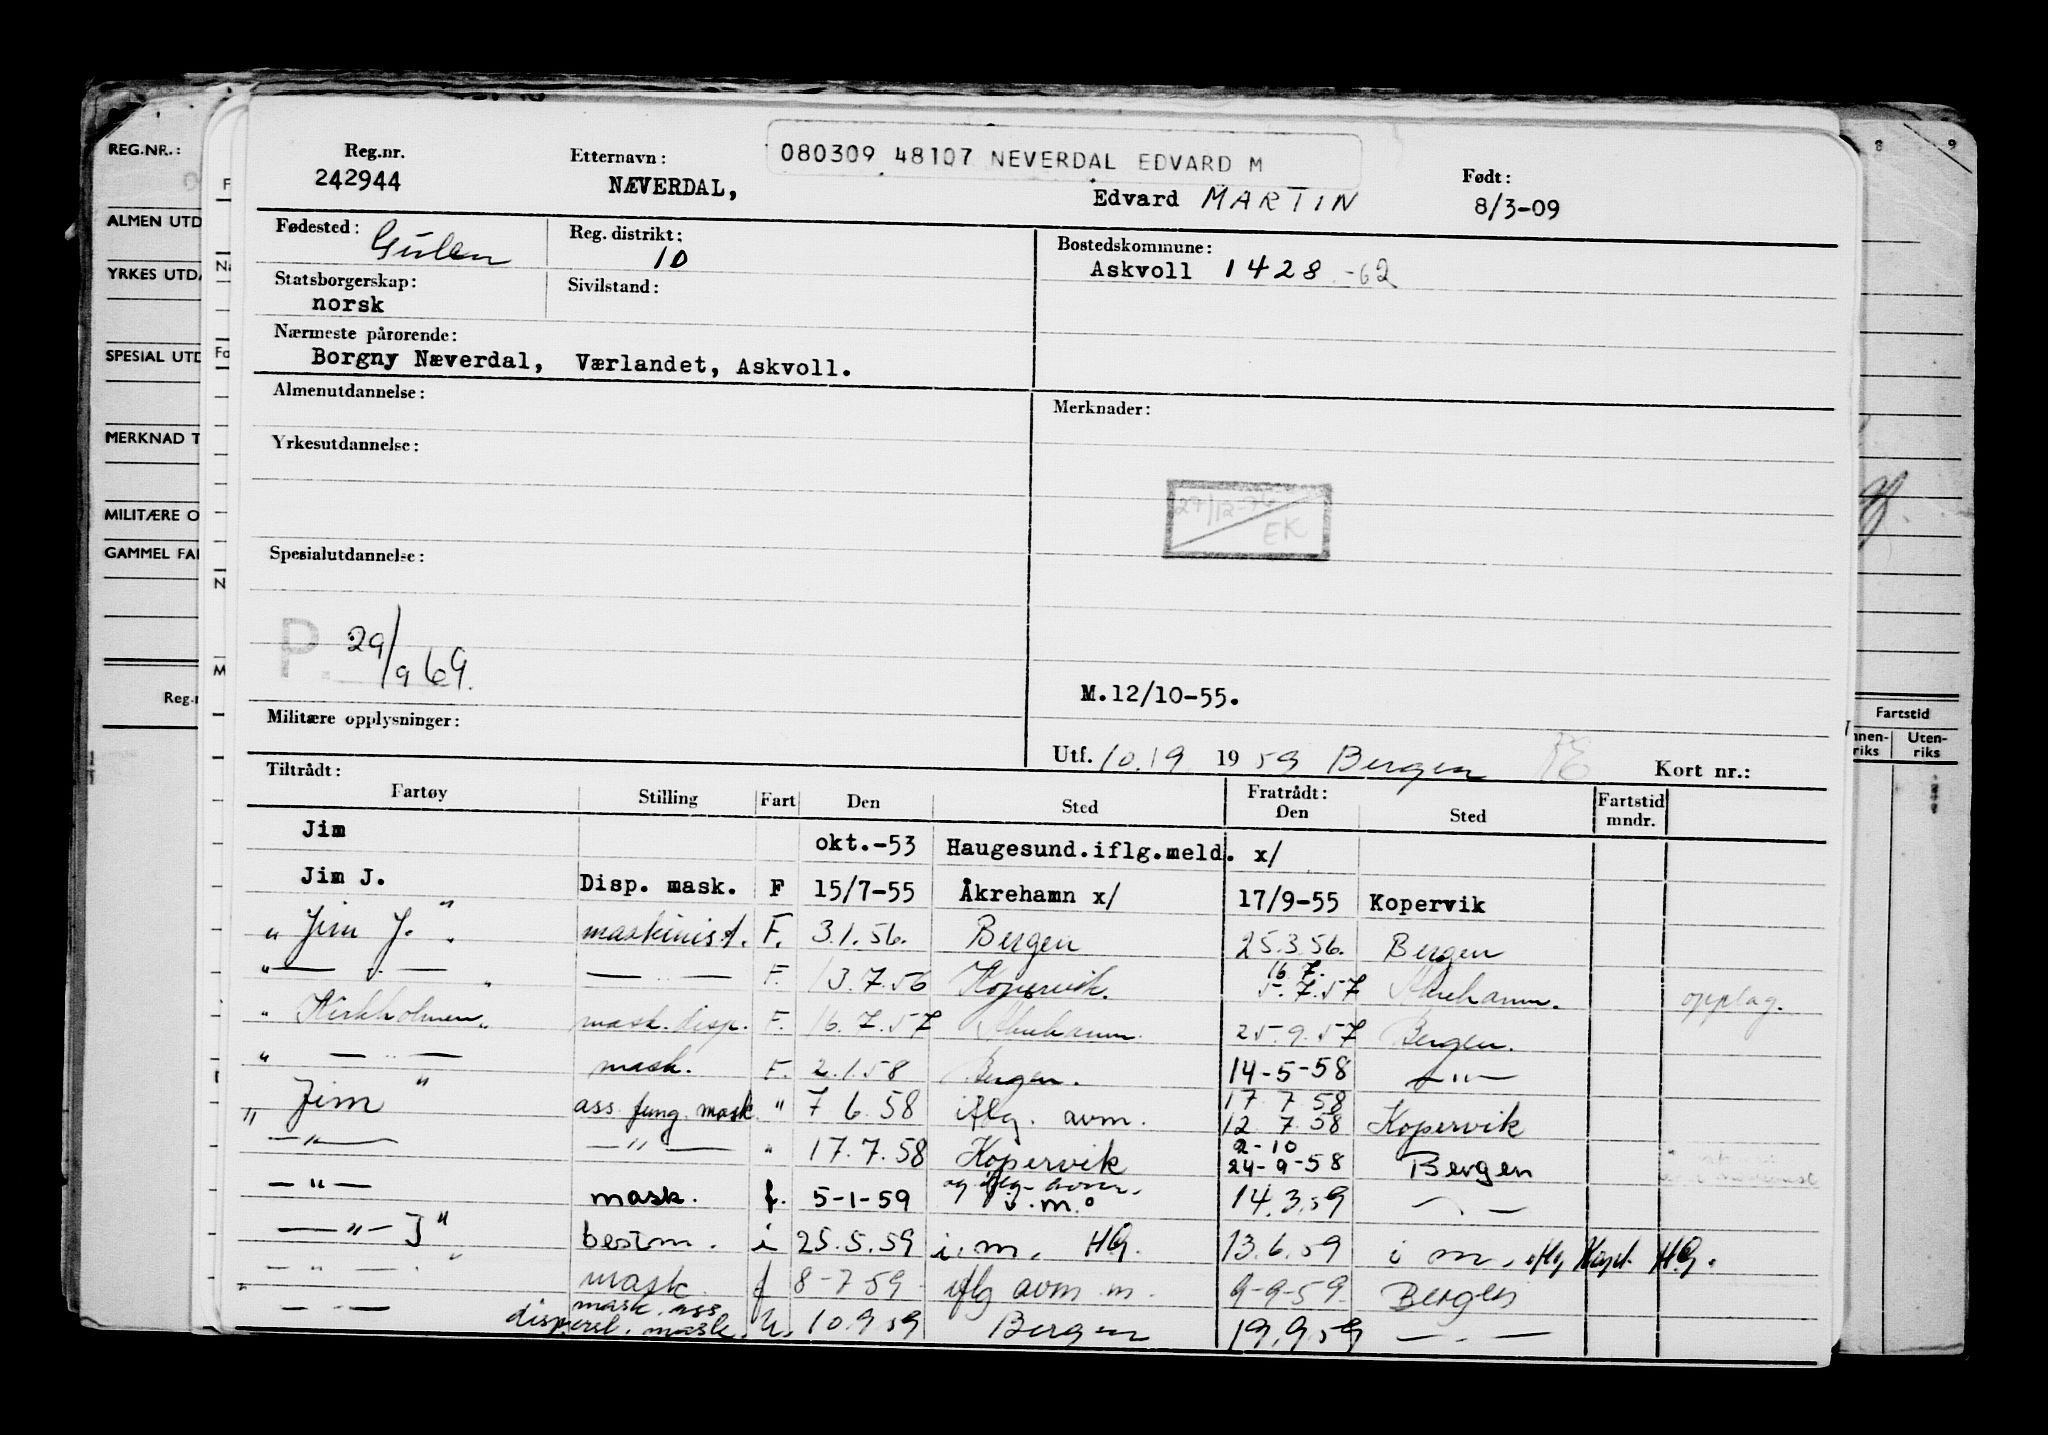 080309 48107 NEVERDAL EDVARD M
Reg.nr. Etternavn: Født:
242944 NÆVERDAL, Edvard MARTIN 8/3-09
Fødested: Gulen Reg. distrikt: 10 Bostedskommune:
Askvoll 1428 -62
Statsborgerskap: norsk Sivilstand:
Nærmeste pårørende:
Borgny Næverdal, Værlandet, Askvoll.
Almenutdannelse: Merknader:
Yrkesutdannelse:
EK
Spesialutdannelse:
P. 29/9 69.
M.12/10-55.
Militære opplysninger:
Utf. 10.19 1959 Bergen Kort nr.:
Tiltrådt: Fratrådt:
Fartøy Stilling Fart Den Sted Den Sted Fartstid mndr.
Jim okt.-53 Haugesund.iflg.meld. x/
Jim J. Disp. mask. F 15/7-55 Åkrehamn x/ 17/9-55 Kopervik
" Jim J. " maskinist. F. 3.1.56. Bergen 25.3 56. Bergen
" — " — " — " — F. 13.7.56 Kopervik. 16.7. 5.7.57 Åkrehamn. opplag.
" Kirkholmen " mask. disp. F. 16.7.57 Åkrehamn 25.9.57 Bergen.
" — " — mask. F. 2.1.58 Bergen. 14-5-58 — " —
" Jim " ass. fung. mask " 7 6.58 iflg. avm. 17 7 58 12 7.58 Kopervik
— " — — " — " 17.7.58 Kopervik 2-10 24-9-58 Bergen
— " — mask. f. 5-1-59 og iflg. avm. 14.3.59 — " —
— " — J " bestm. i 25.5.59 i. m. HG. 13.6.59 i m, iflg HG.
— " — " mask. f 8-7 59 iflg avm m. 9-9-59. Bergen
" — " — mask. ass. disperel. mask. U. 10.9 59 Bergen 19.9.59 — " —
REG.NR.:
ALMEN UTD
YRKES UTDA
SPESIAL UTD
MERKNAD T
MILITÆRE O
GAMMEL FAR
Reg.n
8 9
Fartstid
nnen-riks Uten-riks